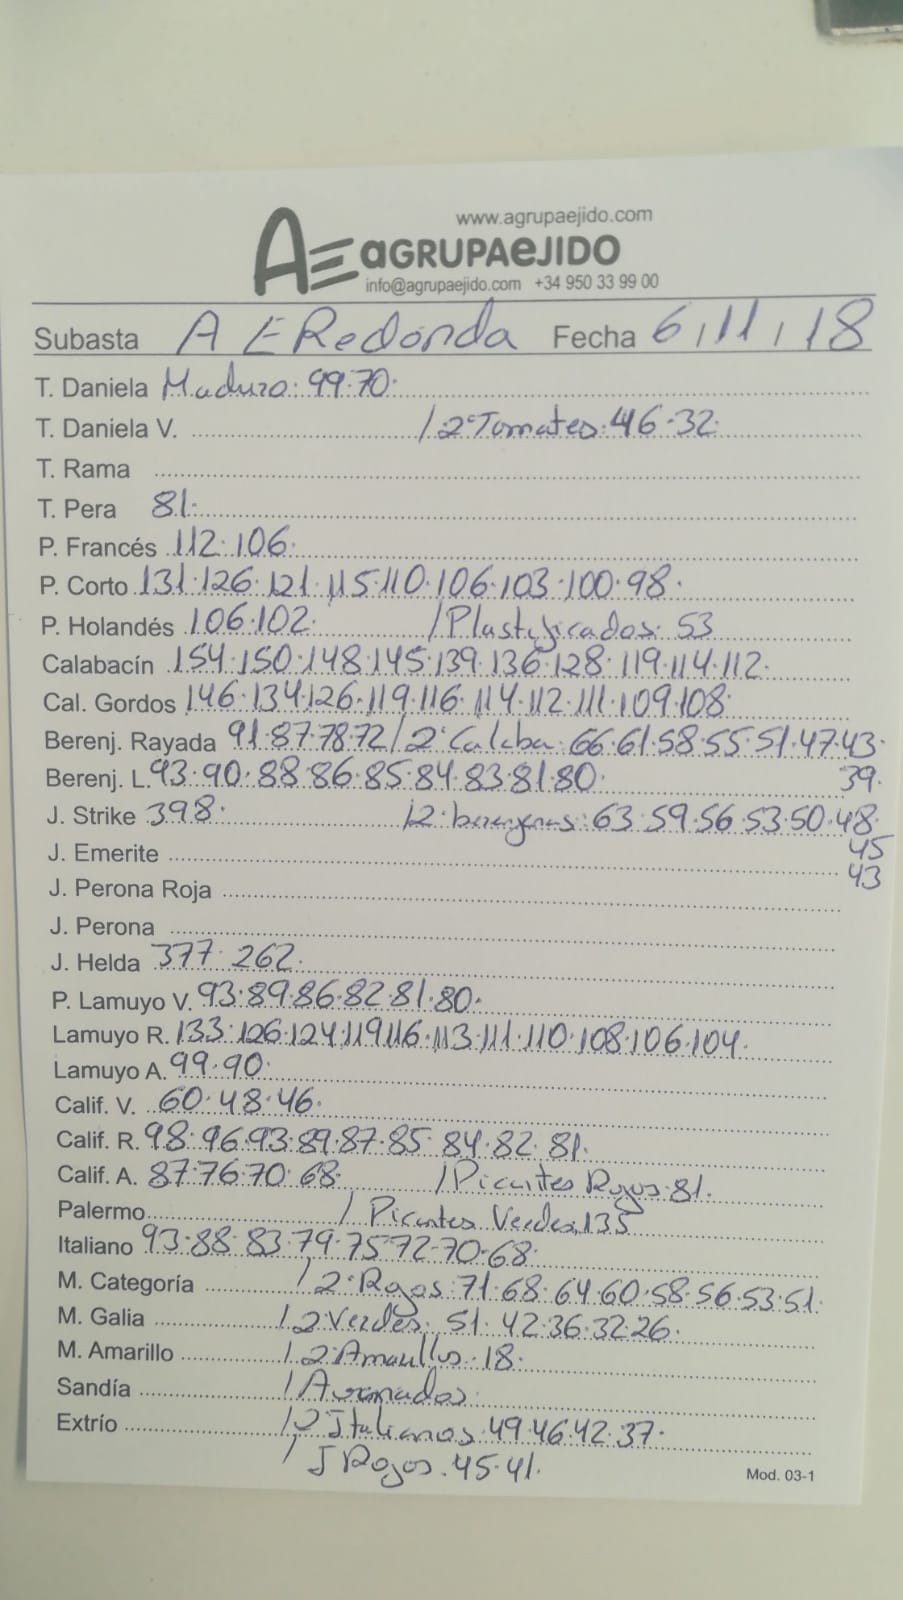 www.agrupaejido.com
AE aGRUPAeJIDO
info@agrupaejido.com +34 950 33 99 00
Subasta A E Redonda Fecha 6/11/18
T. Daniela Maduro: 99·70·
T. Daniela V. /2ª Tomates: 46·32·
T. Rama
T. Pera 81·
P. Francés 112·106·
P. Corto 131·126·121·115·110·106·103·100·98·
P. Holandés 106·102· /Plastificados: 53
Calabacín 154·150·148·145·139·136·128·119·114·112·
Cal. Gordos 146·134·126·119·116·114·112·111·109·108·
Berenj. Rayada 91·87·78·72/2ª Calaba: 66·61·58·55·51·47·43·
Berenj. L. 93·90·88·86·85·84·83·81·80· 39·
J. Strike 398· /2ª berengenas: 63·59·56·53·50·48·
45
J. Emerite 43
J. Perona Roja
J. Perona
J. Helda 377·262·
P. Lamuyo V. 93·89·86·82·81·80·
Lamuyo R. 133·126·124·119·116·113·111·110·108·106·104·
Lamuyo A. 99·90·
Calif. V. 60·48·46·
Calif. R. 98·96·93·89·87·85·84·82·81·
Calif. A. 87·76·70·68· /Picantes Rojos: 81·
Palermo /Picantes Verdes 135
Italiano 93·88·83·79·75·72·70·68·
M. Categoría /2ª Rojos: 71·68·64·60·58·56·53·51·
M. Galia /2ª Verdes: 51·42·36·32·26·
M. Amarillo /2ª Amarillos·18·
Sandía /
Extrío /2 Italianos·49·46·42·37·
/ J Rojos·45·41·
Mod. 03-1